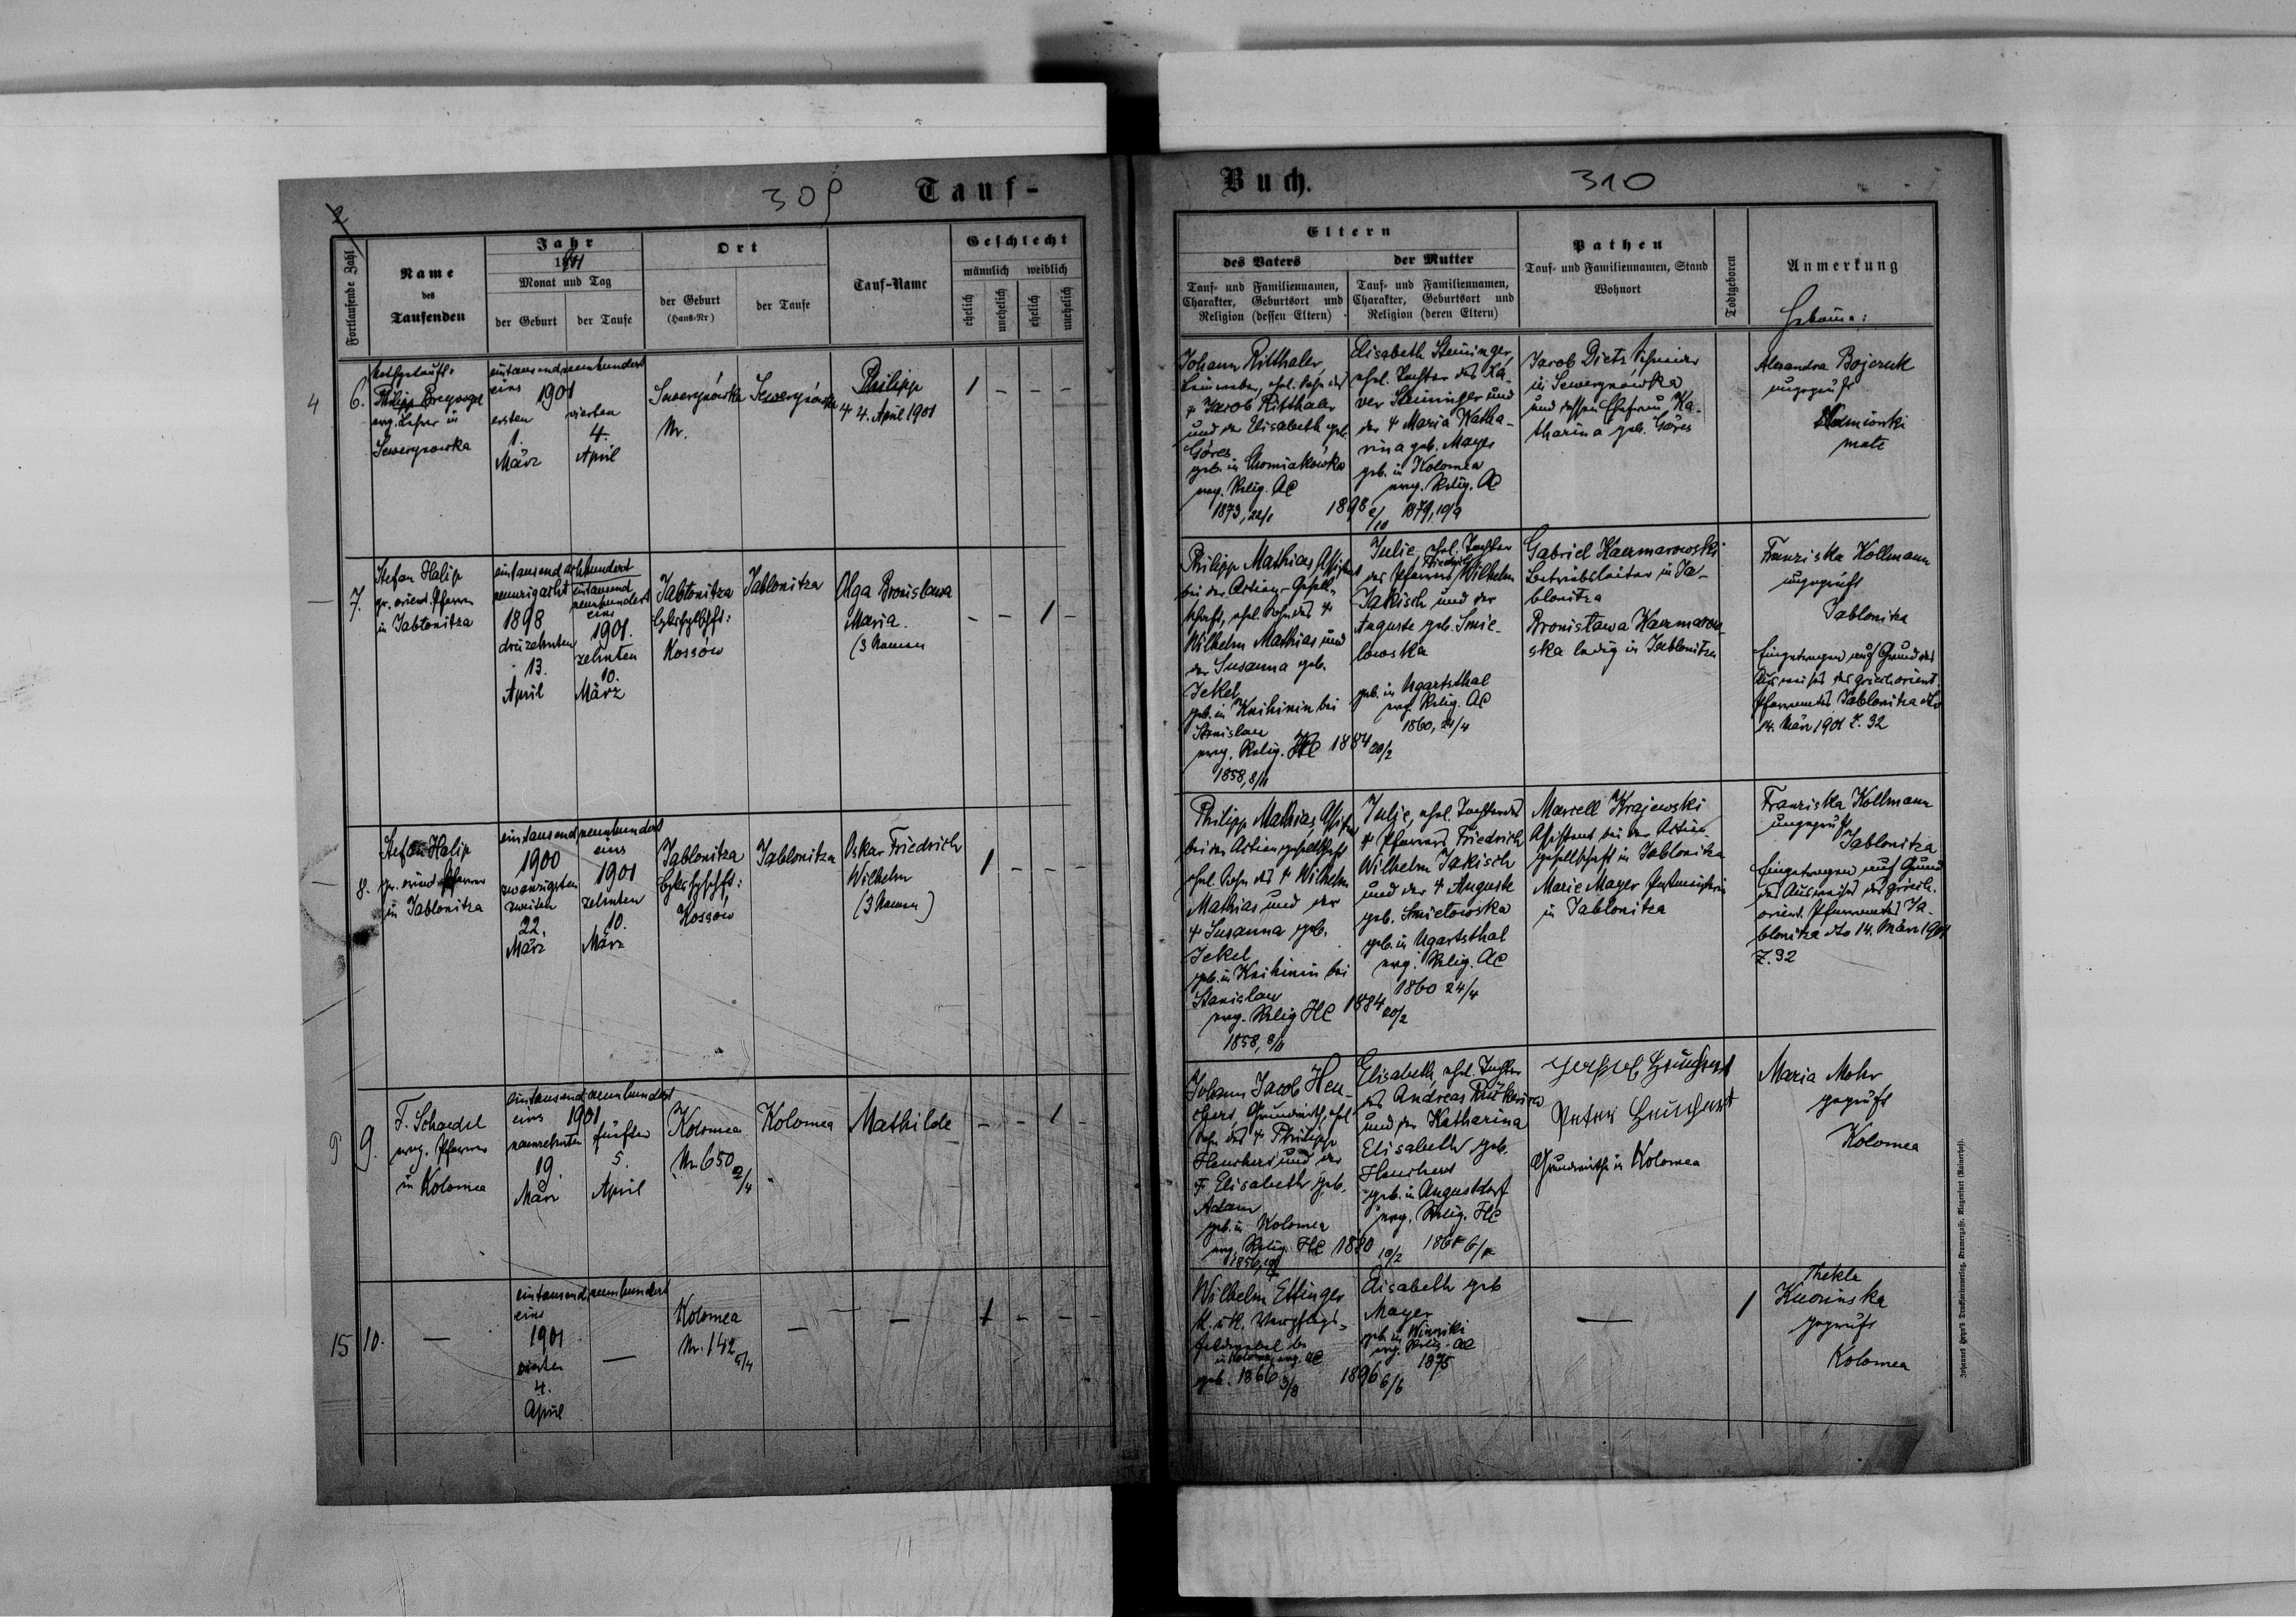 309
Tauf-
2
Fortlaufende Zahl
Name
des
Taufenden
Jahr
1901
Monat und Tag
der Geburt
der Taufe
Ort
der Geburt
(Haus-Nr)
der Taufe
Tauf-Name
Geschlecht
männlich
weiblich
ehelich
unehelich
ehelich
unehelich
Buch.
310
Eltern
des Vaters
Tauf- und Familiennamen,
Charakter, Geburtsort und
Religion (dessen Eltern)
der Mutter
Tauf- und Familiennamen,
Charakter, Geburtsort und
Religion (deren Eltern)
Pathen
Tauf- und Familiennamen, Stand
Wohnort
Todtgeboren
Anmerkung
Hebamme:
4
6.
Nothgetauft:
Philipp Breyvogel
evg. Lehrer in
Sewerynowka
eintausendneunhundert
eins 1901
ersten
1.
März
vierten
4.
April
Sewerynówka
Nr.
Sewerynówka
Philipp
† 4. April 1901
1 - - -
Johann Ritthaler,
Leinweber, ehel. Sohn des
† Jacob Ritthaler
und der Elisabeth geb.
Göres
geb. in Chomiakówka
evg. Relig. AC
1873, 22/1
1898 2/10
Elisabeth Steininger,
ehel. Tochter des Xa-
ver Steininger und
der † Maria Katha-
rina geb. Mayer
geb. in Kolomea
evg. Relig. AC
1879, 10/9
Jacob Dietz Schmied
in Sewerynówka
und dessen Ehefrau Ka-
tharina geb. Göres
Alexandra Bojczuk
ungeprüft
7.
Stefan Halip
gr. orient. Pfarrer
in Jabłonitza
eintausend achthundert
neunzigacht
1898
dreizehnten
13.
April
eintausend
neunhundert
eins
1901.
zehnten
10.
März
Jabłonitza
Kossów
Jablonitza
Olga Bronisława
Maria.
(3 Namen
- - 1 -
Philipp Mathias, Assistent
bei der Actien-Gesell-
schaft, ehel. Sohn des †
Wilhelm Mathias und
der Susanna geb.
Jekel
geb. in Knihinin bei
Stanislau
evg. Relig. HC
1858, 8/11
1884 20/2
Julie, ehel. Tochter
des Pfarrers Friedrich Wilhelm
Jakisch und der
Auguste geb. Smie-
lowska
geb. in Ugartsthal
evg. Relig. AC
1860, 24/4
Gabriel Kaczmarowski
Betriebsleiter in Ja-
blonitza
Bronisława Kaczmarow-
ska ledig in Jablonitza
Franziska Kollmann
ungeprüft
Jablonitza
Eingetragen auf Grund des
Ausweises des griech. orient.
Pfarramtes Jablonitza dto
14. März 1901 Z. 92
8.
Stefan Halip
gr. orient. Pfarrer
in Jablonitza
eintausend neunhundert
1900
zwanzigsten
zweiten
22.
März
eins
1901
zehnten
10.
März
Jablonitza
Kossów
Jablonitza
Oskar Friedrich
Wilhelm
(3 Namen)
1 - - -
Philipp Mathias, Assistent
bei der Actiengesellschaft
ehel. Sohn des † Wilhelm
Mathias und der
† Susanna geb.
Jekel
geb. in Knihinin bei
Stanislau
evg. Relig HC
1858, 8/11
1884 20/2
Julie, ehel. Tochter des
† Pfarrers Friedrich
Wilhelm Jakisch
und der † Auguste
geb. Smielowska
geb. in Ugartsthal
evg. Relig. AC
1860 24/4
Marcell Krajewski
Assistent bei der Actien-
gesellschaft in Jablonitza
Marie Mayer
in Jablonitza
Franziska Kollmann
ungeprüft
Jablonitza
Eingetragen auf Grund
des Ausweises des griech.
orient. Pfarramtes Ja-
blonitza dto 14. März 1901
Z. 92
9
9.
F. Schaedel
evg. Pfarrer
in Kolomea
eintausend neunhundert
eins 1901
neunzehnten
19.
März
fünften
5.
April
Kolomea
Nr. 650 2/4
Kolomea
Mathilde
- - 1 -
Johann Jacob Heu-
chert Grundwirth, ehel
Sohn des † Philipp
Heuchert und der
† Elisabeth geb.
Adam
geb. in Kolomea
evg. Relig. HC
Elisabeth, ehel. Tochter
des Andreas
und der Katharina
Elisabeth geb.
Heuchert
geb. in Augustdorf
evg. Relig. HC
Peter Heuchert
Grundwirthe in Kolomea
Maria Mohr
geprüft
Kolomea
15
10.
—
eintausend neunhundert
eins
1901
vierten
4.
April
—
Kolomea
Nr. 142 5/4
—
—
1 - - -
Wilhelm Ettinger
k. u. k. Verpflegs-
feldwebel
in Kolomea evg. AC
geb. 1866 3/8
1896 6/6
Elisabeth geb
Mayer
geb. in Winniki
evg. Relig. AC
1875
—
1
Thekla
geprüft
Kolomea